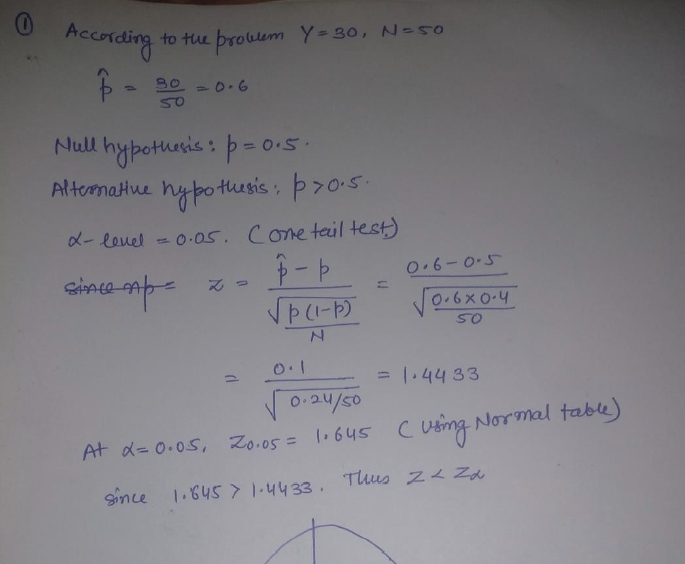 ① According to the problem Y = 30, N = 50
p̂ = 30/50 = 0.6
Null hypothesis : p = 0.5.
Alternative hypothesis : p > 0.5.
α- level = 0.05. (one tail test)
since np = z = (p̂ - p)/√(p(1-p)/N) = (0.6 - 0.5)/√(0.6 × 0.4/50)
= 0.1/√(0.24/50) = 1.4433
At α = 0.05, Z0.05 = 1.645 (using Normal table)
since 1.645 > 1.4433. Thus Z < Zα